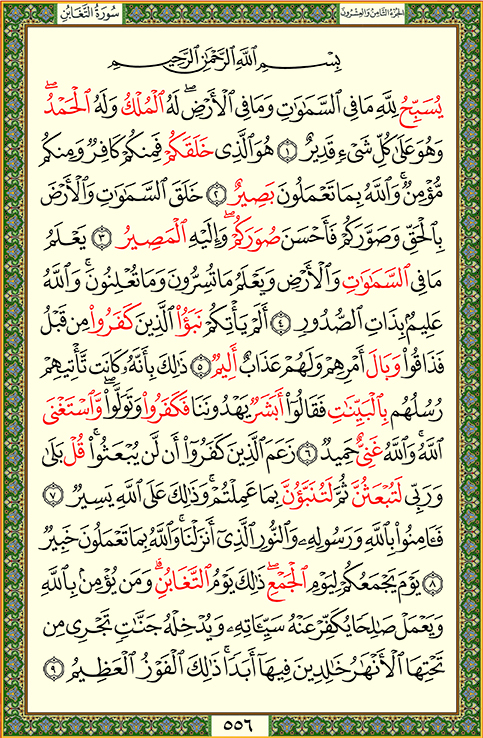 الجزء الثامن والعشرون
سورة التغابن
بِسْمِ ٱللَّهِ ٱلرَّحْمَٰنِ ٱلرَّحِيمِ
يُسَبِّحُ لِلَّهِ مَا فِي ٱلسَّمَٰوَٰتِ وَمَا فِي ٱلْأَرْضِۖ لَهُ ٱلْمُلْكُ وَلَهُ ٱلْحَمْدُۖ
وَهُوَ عَلَىٰ كُلِّ شَيْءٍ قَدِيرٌ ١ هُوَ ٱلَّذِي خَلَقَكُمْ فَمِنكُمْ كَافِرٌ وَمِنكُم
مُّؤْمِنٌۚ وَٱللَّهُ بِمَا تَعْمَلُونَ بَصِيرٌ ٢ خَلَقَ ٱلسَّمَٰوَٰتِ وَٱلْأَرْضَ
بِٱلْحَقِّ وَصَوَّرَكُمْ فَأَحْسَنَ صُوَرَكُمْۖ وَإِلَيْهِ ٱلْمَصِيرُ ٣ يَعْلَمُ
مَا فِي ٱلسَّمَٰوَٰتِ وَٱلْأَرْضِ وَيَعْلَمُ مَا تُسِرُّونَ وَمَا تُعْلِنُونَۚ وَٱللَّهُ
عَلِيمٌۢ بِذَاتِ ٱلصُّدُورِ ٤ أَلَمْ يَأْتِكُمْ نَبَؤُا۟ ٱلَّذِينَ كَفَرُوا۟ مِن قَبْلُ
فَذَاقُوا۟ وَبَالَ أَمْرِهِمْ وَلَهُمْ عَذَابٌ أَلِيمٌ ٥ ذَٰلِكَ بِأَنَّهُۥ كَانَت تَّأْتِيهِمْ
رُسُلُهُم بِٱلْبَيِّنَٰتِ فَقَالُوٓا۟ أَبَشَرٌ يَهْدُونَنَا فَكَفَرُوا۟ وَتَوَلَّوا۟ۖ وَّٱسْتَغْنَى
ٱللَّهُۚ وَٱللَّهُ غَنِيٌّ حَمِيدٌ ٦ زَعَمَ ٱلَّذِينَ كَفَرُوٓا۟ أَن لَّن يُبْعَثُوا۟ۚ قُلْ بَلَىٰ
وَرَبِّي لَتُبْعَثُنَّ ثُمَّ لَتُنَبَّؤُنَّ بِمَا عَمِلْتُمْۚ وَذَٰلِكَ عَلَى ٱللَّهِ يَسِيرٌ ٧
فَـَٔامِنُوا۟ بِٱللَّهِ وَرَسُولِهِۦ وَٱلنُّورِ ٱلَّذِيٓ أَنزَلْنَاۚ وَٱللَّهُ بِمَا تَعْمَلُونَ خَبِيرٌ
٨ يَوْمَ يَجْمَعُكُمْ لِيَوْمِ ٱلْجَمْعِۖ ذَٰلِكَ يَوْمُ ٱلتَّغَابُنِۗ وَمَن يُؤْمِنۢ بِٱللَّهِ
وَيَعْمَلْ صَٰلِحًا يُكَفِّرْ عَنْهُ سَيِّـَٔاتِهِۦ وَيُدْخِلْهُ جَنَّٰتٍ تَجْرِي مِن
تَحْتِهَا ٱلْأَنْهَٰرُ خَٰلِدِينَ فِيهَآ أَبَدًاۚ ذَٰلِكَ ٱلْفَوْزُ ٱلْعَظِيمُ ٩
٥٥٦